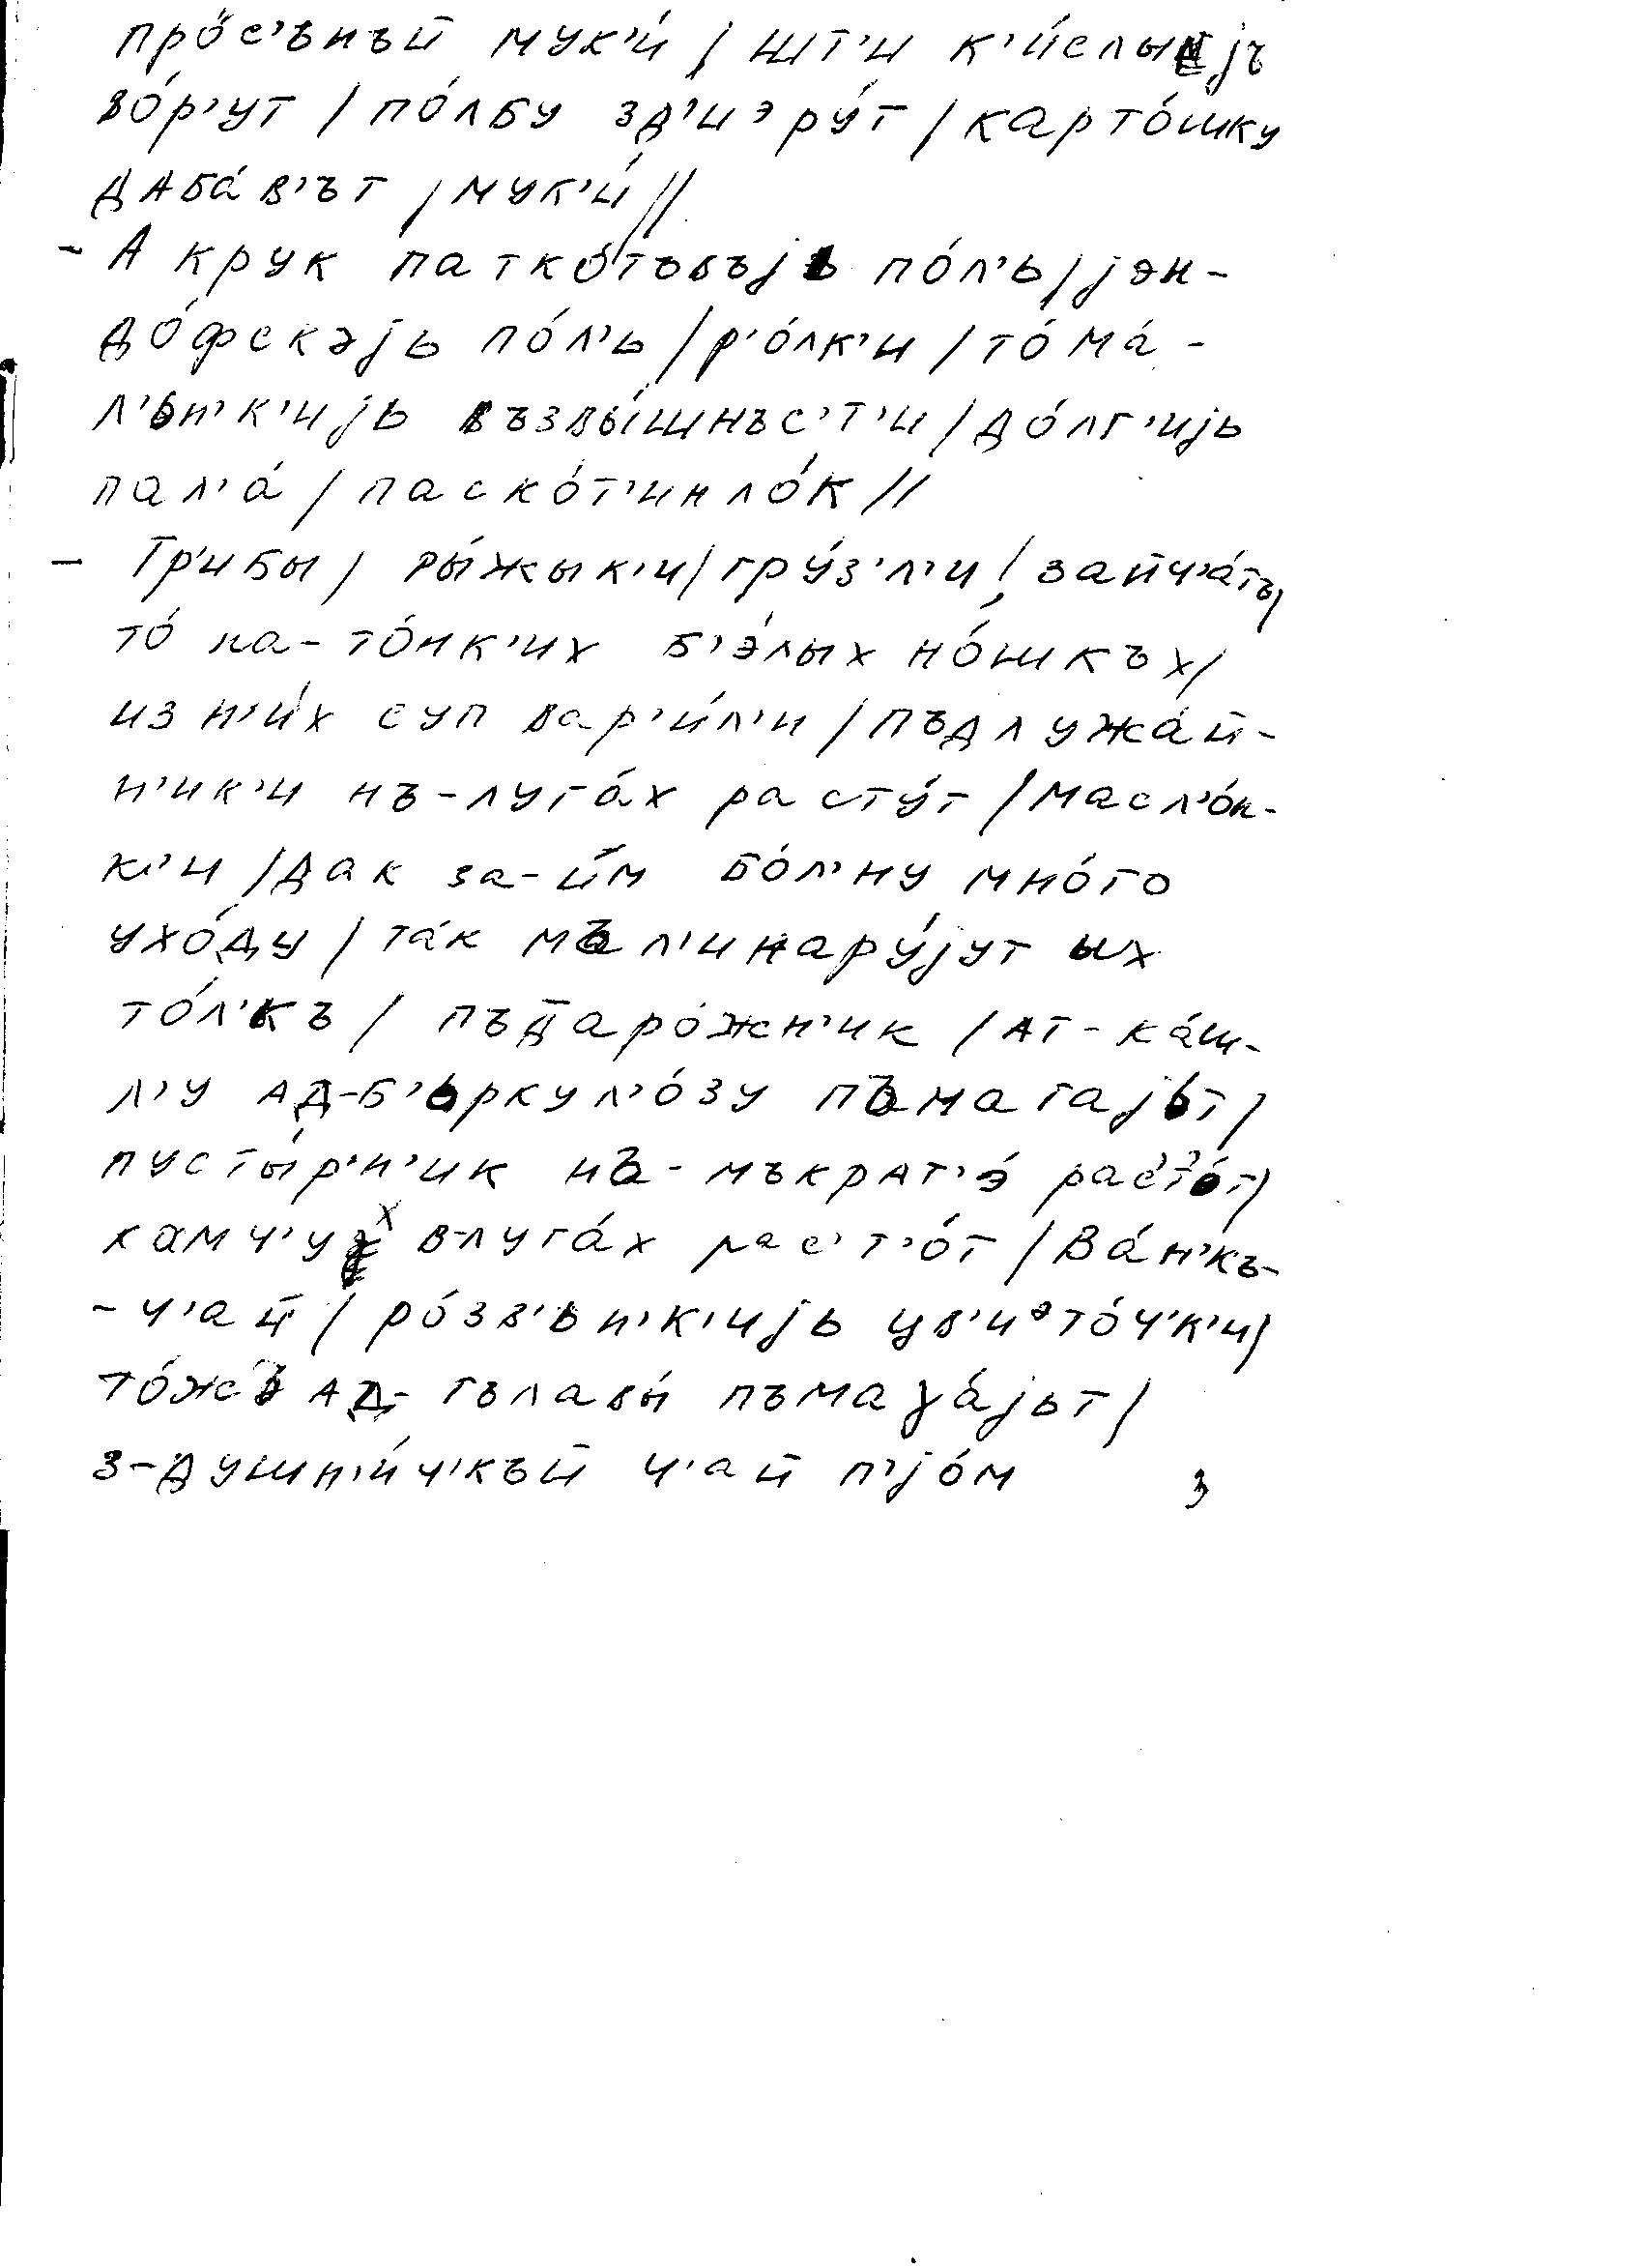 про́с'ънъй мук'и́ / шт'и к'и́слыjъ
во́р'ут / по́лбу зд'иэру́т / карто́шку
даба́в'ът / мук'и́ //
- А крук патко́товъjь по́л'ь / jэн-
до́фскэjь по́л'ь / р'о́лк'и / то́ ма́-
л'ьн'к'иjь възвы́шнъс'т'и / до́лг'иjь
пал'а́ / паско́т'ин ло́к //
- Гр'ибы / ры́жык'и / гру́з'л'и / зайч'а́тъ /
то́ на-то́нк'их б'э́лых но́шкъх /
из н'и́х суп вар'и́л'и / пъдлужа́й-
н'ик'и нъ-луга́х расту́т / масл'о́н-
к'и / дак за-и́м бо́л'ну мно́го
ухо́ду / та́к мъл'инару́jут ых
то́л'къ / пъдаро́жн'ик / ат-ка́ш-
л'у ад-б'ьркул'о́зу пъмагаjьт /
пусты́р'н'ик нъ-мъкрат'э́ рас'т'о́т /
камч'ух в-луга́х рас'т'о́т / Ва́н'къ-
-ч'ай / ро́зв'ьн'к'иjь цв'иэто́ч'к'и /
то́жъ ад-гълавы́ пъмаɣа́jьт /
з-душн'и́ч'къй ч'ай п'jо́м 3